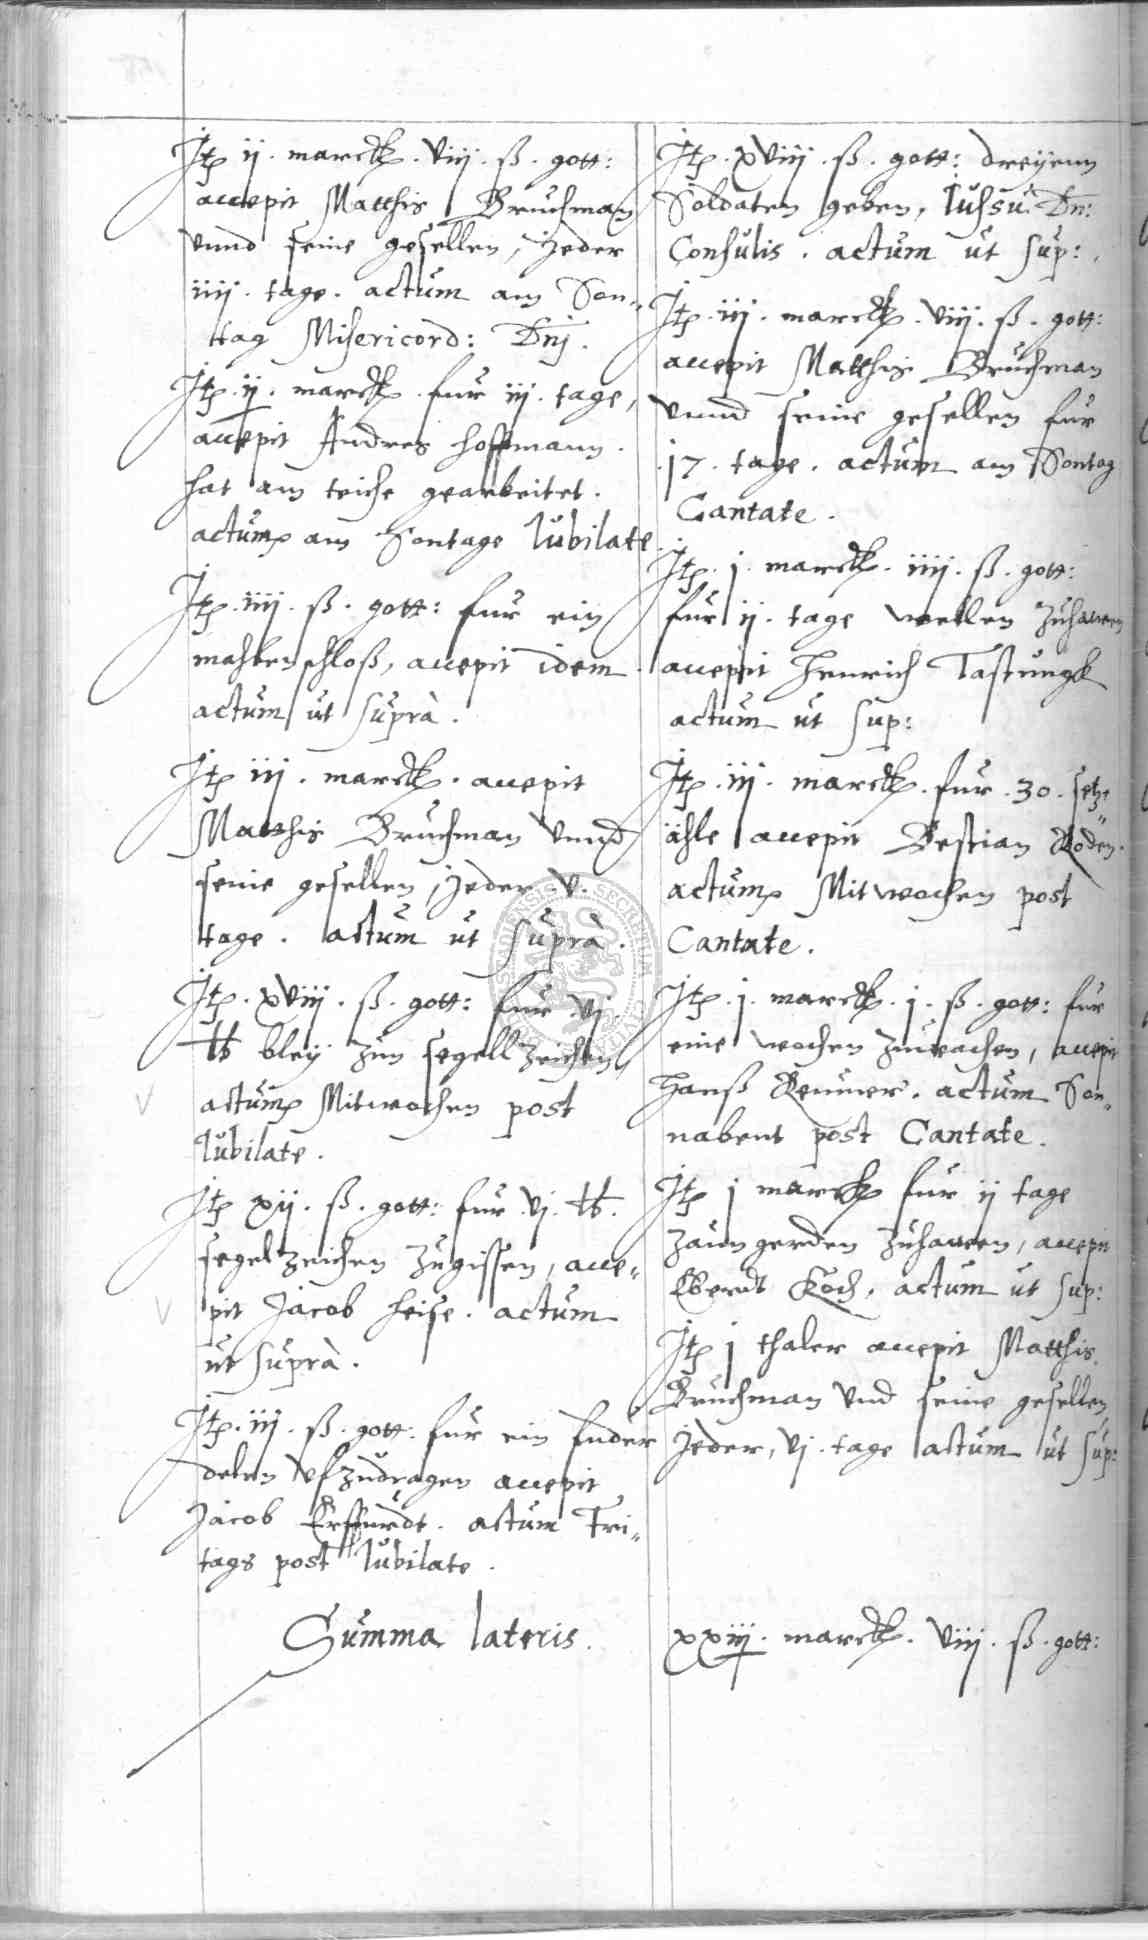 Itp ij. marck. viij. ß. gott:
accepit Matthis Bruchman
vnnd seine gesellen, Jeder
iiij. tage. actum am Son„
tag Misericord: Dnj.
Itp. ij. marck fur iij. tage,
accepit Andres hoffmann.
hat am teiche gearbeitet.
actum am Sontage Iubilate
Itp. iiij. ß. gott: fur ein
mahlenschloß, accepit idem.
actum ut suprà.
Itp iij. marck. accepit
Matthis Bruchman vnnd
seine gesellen, Jeder v.
tage. actum ut suprà.
Itp. xviij. ß. gott: fur vj.
℔ bleÿ zun segellzeichen,
actum Mitwochen post
Iubilate.
Itp xij. ß. gott: fur vj. ℔.
segelzeichen zugissen, acce„
pit Jacob heise. actum
ut suprà.
Itp. iij. ß. gott: fur ein fuder
delen vfzudragen accepit
Jacob Erffurdt. actum Fri„
tags post Iubilate.
Summa lateris.
Itp. xviij. ß. gott: dreÿenn
Soldaten geben, Iussu Dn:
Consulis. actum ut sup:
Itp. iij. marck. viij. ß. gott:
accepit Matthis Bruchman
vnnd seine gesellen fur
.17. tage. actum am Sontag
Cantate.
Itp. j. marck. iiij. ß. gott:
fur ij. tage wellen zuhawen
accepit Henrich Tastungk
actum ut sup:
Itp. iij. marck. fur. 30. setze„
ähle accepit Bestian Boden.
actum Mitwochen post
Cantate.
Itp. j. marck. j. ß. gott: fur
eine wochen zuwachen, accepit
Hanß Renner. actum Son„
nabent post Cantate.
Itp j marck fur ij tage
zaungerden zuhawen, accepit
Eberdt Koch, actum ut sup:
Itp j thaler accepit Matthis
Bruchman vnd seine gesellen
Jeder, vj. tage actum ut sup:
xxiij. marck. viij. ß. gott: